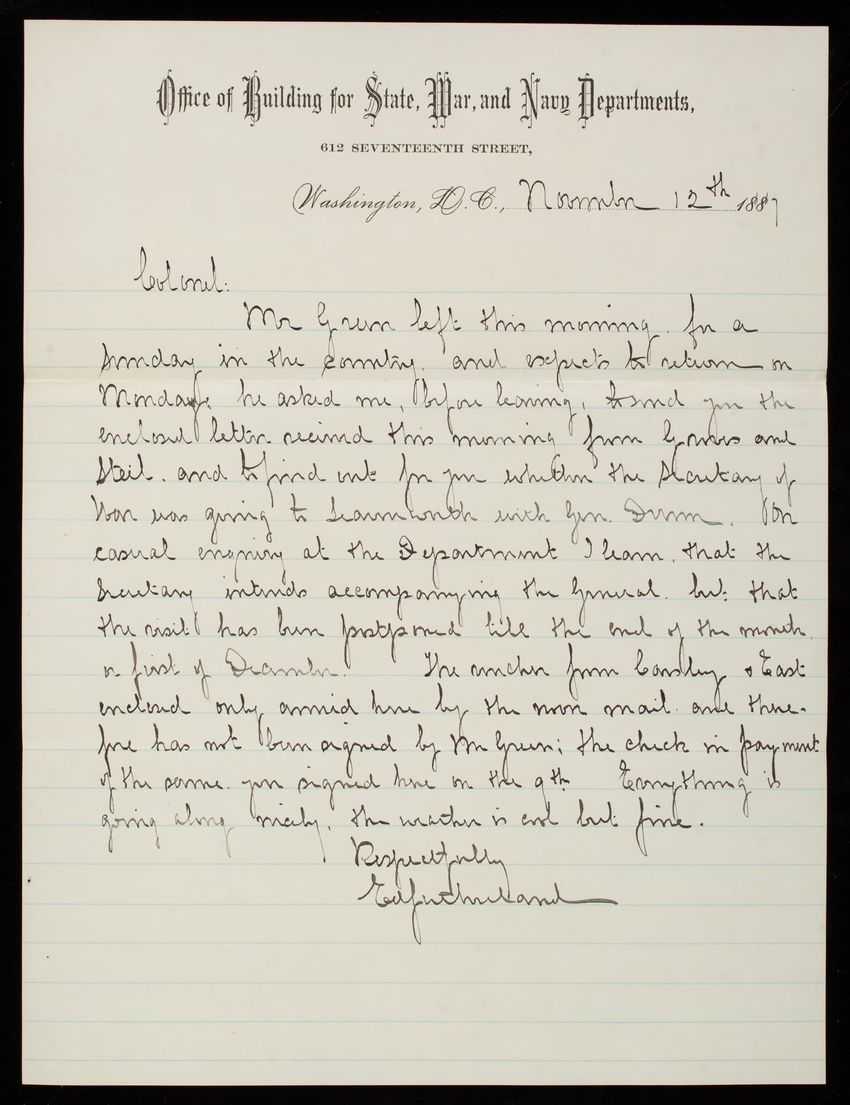 Office of Building for State, War, and Navy Departments,
612 SEVENTEENTH STREET,
Washington, D.C., November 12th 1887
Colonel:
Mr Green left this morning for a
Sunday in the country and expects to return on
Monday; he asked me, before leaving, to send you the
enclosed letter received this morning from Graves and
Steil. and to find out for you whether the Secretary of
War was going to Leavenworth with Gen. Drum. On
casual enquiry at the Department I learn, that the
Secretary intends accompanying the General. but that
the visit has been postponed till the end of the month
or first of December. The voucher from & East
enclosed only arrived here by the noon mail and there-
fore has not been signed by Mr Green; the check in payment
of the same. you signed here on the 9th Everything is
going along nicely, the weather is cool but fine.
Respectfully
Ed Sutherland